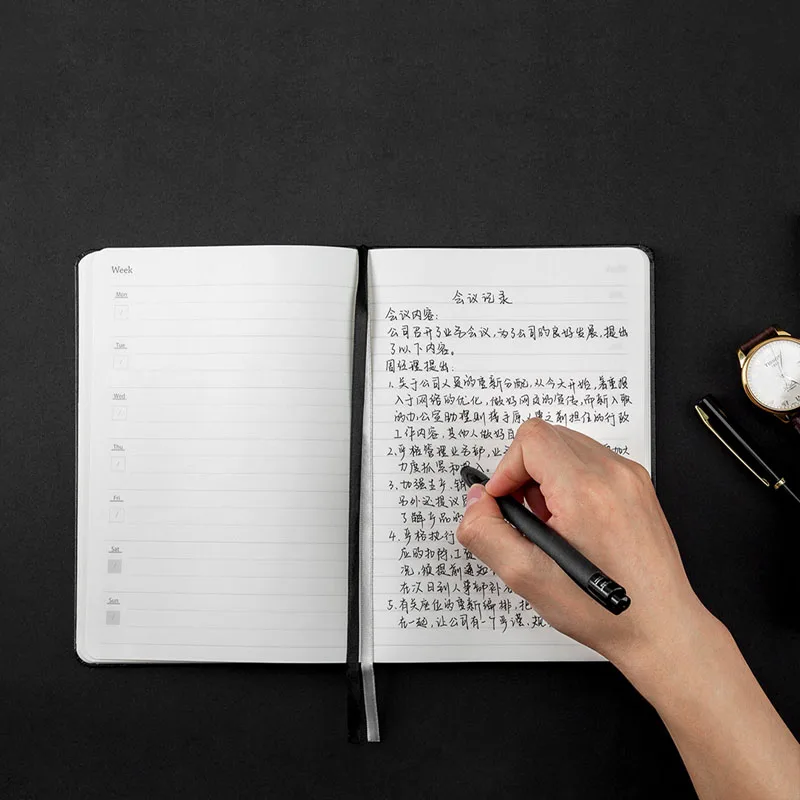 Week
Mon
Tue
Wed
Thu
Fri
Sat
Sun
会议记录
会议内容:
公司召开了业务会议,为了公司的良好发展,提出
了以下内容。
周经理提出:
1.关于公司人员的重新分配,从今天开始,着重投
入于网络的优化,做好网页的宣传,而新入取
的办公室助理则接手原人事之前担任的行政
工作内容,其他人做好自
2.严格管理业务部,业 加大
力度抓紧和
3.加强生产、销
另外还提议
了解产品的
4.严格执行
应的扣除,工资
况,须提前通知
在次日到人事部补
5.有关座位的重新编排,把
在一起,让公司有一个严谨、规